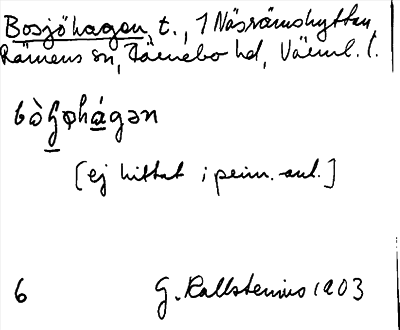 Bosjöhagen, t., 1 Näsrämshyttan,
Rämens sn, Färnebo hd, Värml. l.
hágən
[ej hittat i prim.-aul.]
6 G. Kallstenius 1903